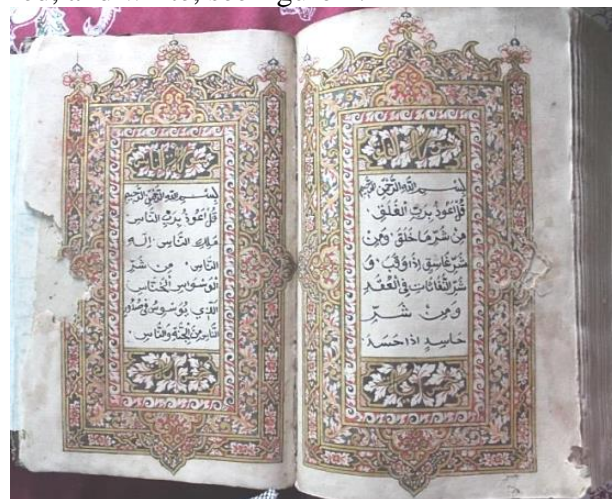 red, and white, see figure
بِسْمِ اللهِ الرَّحْمٰنِ الرَّحِيْمِ
قُلْ اَعُوْذُ بِرَبِّ الْفَلَقِ
مِنْ شَرِّ مَا خَلَقَ وَمِنْ
شَرِّ غَاسِقٍ اِذَا وَقَبَ وَ
شَرِّ النَّفَّاثَاتِ فِى الْعُقَدِ
وَمِنْ شَرِّ
حَاسِدٍ اِذَا حَسَدَ
بِسْمِ اللهِ الرَّحْمٰنِ الرَّحِيْمِ
قُلْ اَعُوْذُ بِرَبِّ النَّاسِ
مَلِكِ النَّاسِ اِلٰهِ
النَّاسِ مِنْ شَرِّ
الْوَسْوَاسِ الْخَنَّاسِ
الَّذِى يُوَسْوِسُ فِى صُدُوْرِ
النَّاسِ مِنَ الْجِنَّةِ وَالنَّاسِ